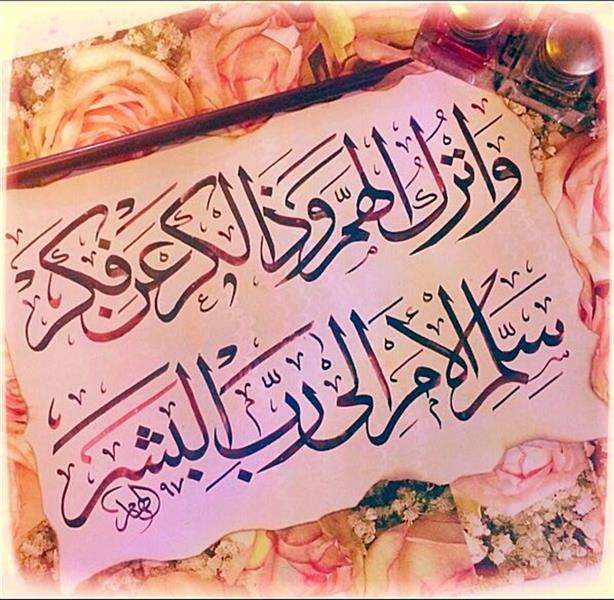 وَاترُك الهمَّ وَذَا الكرَ عَن فِكَر
سَلِّمِ الأمرَ الى رَبِّ البَشَر
٩٧